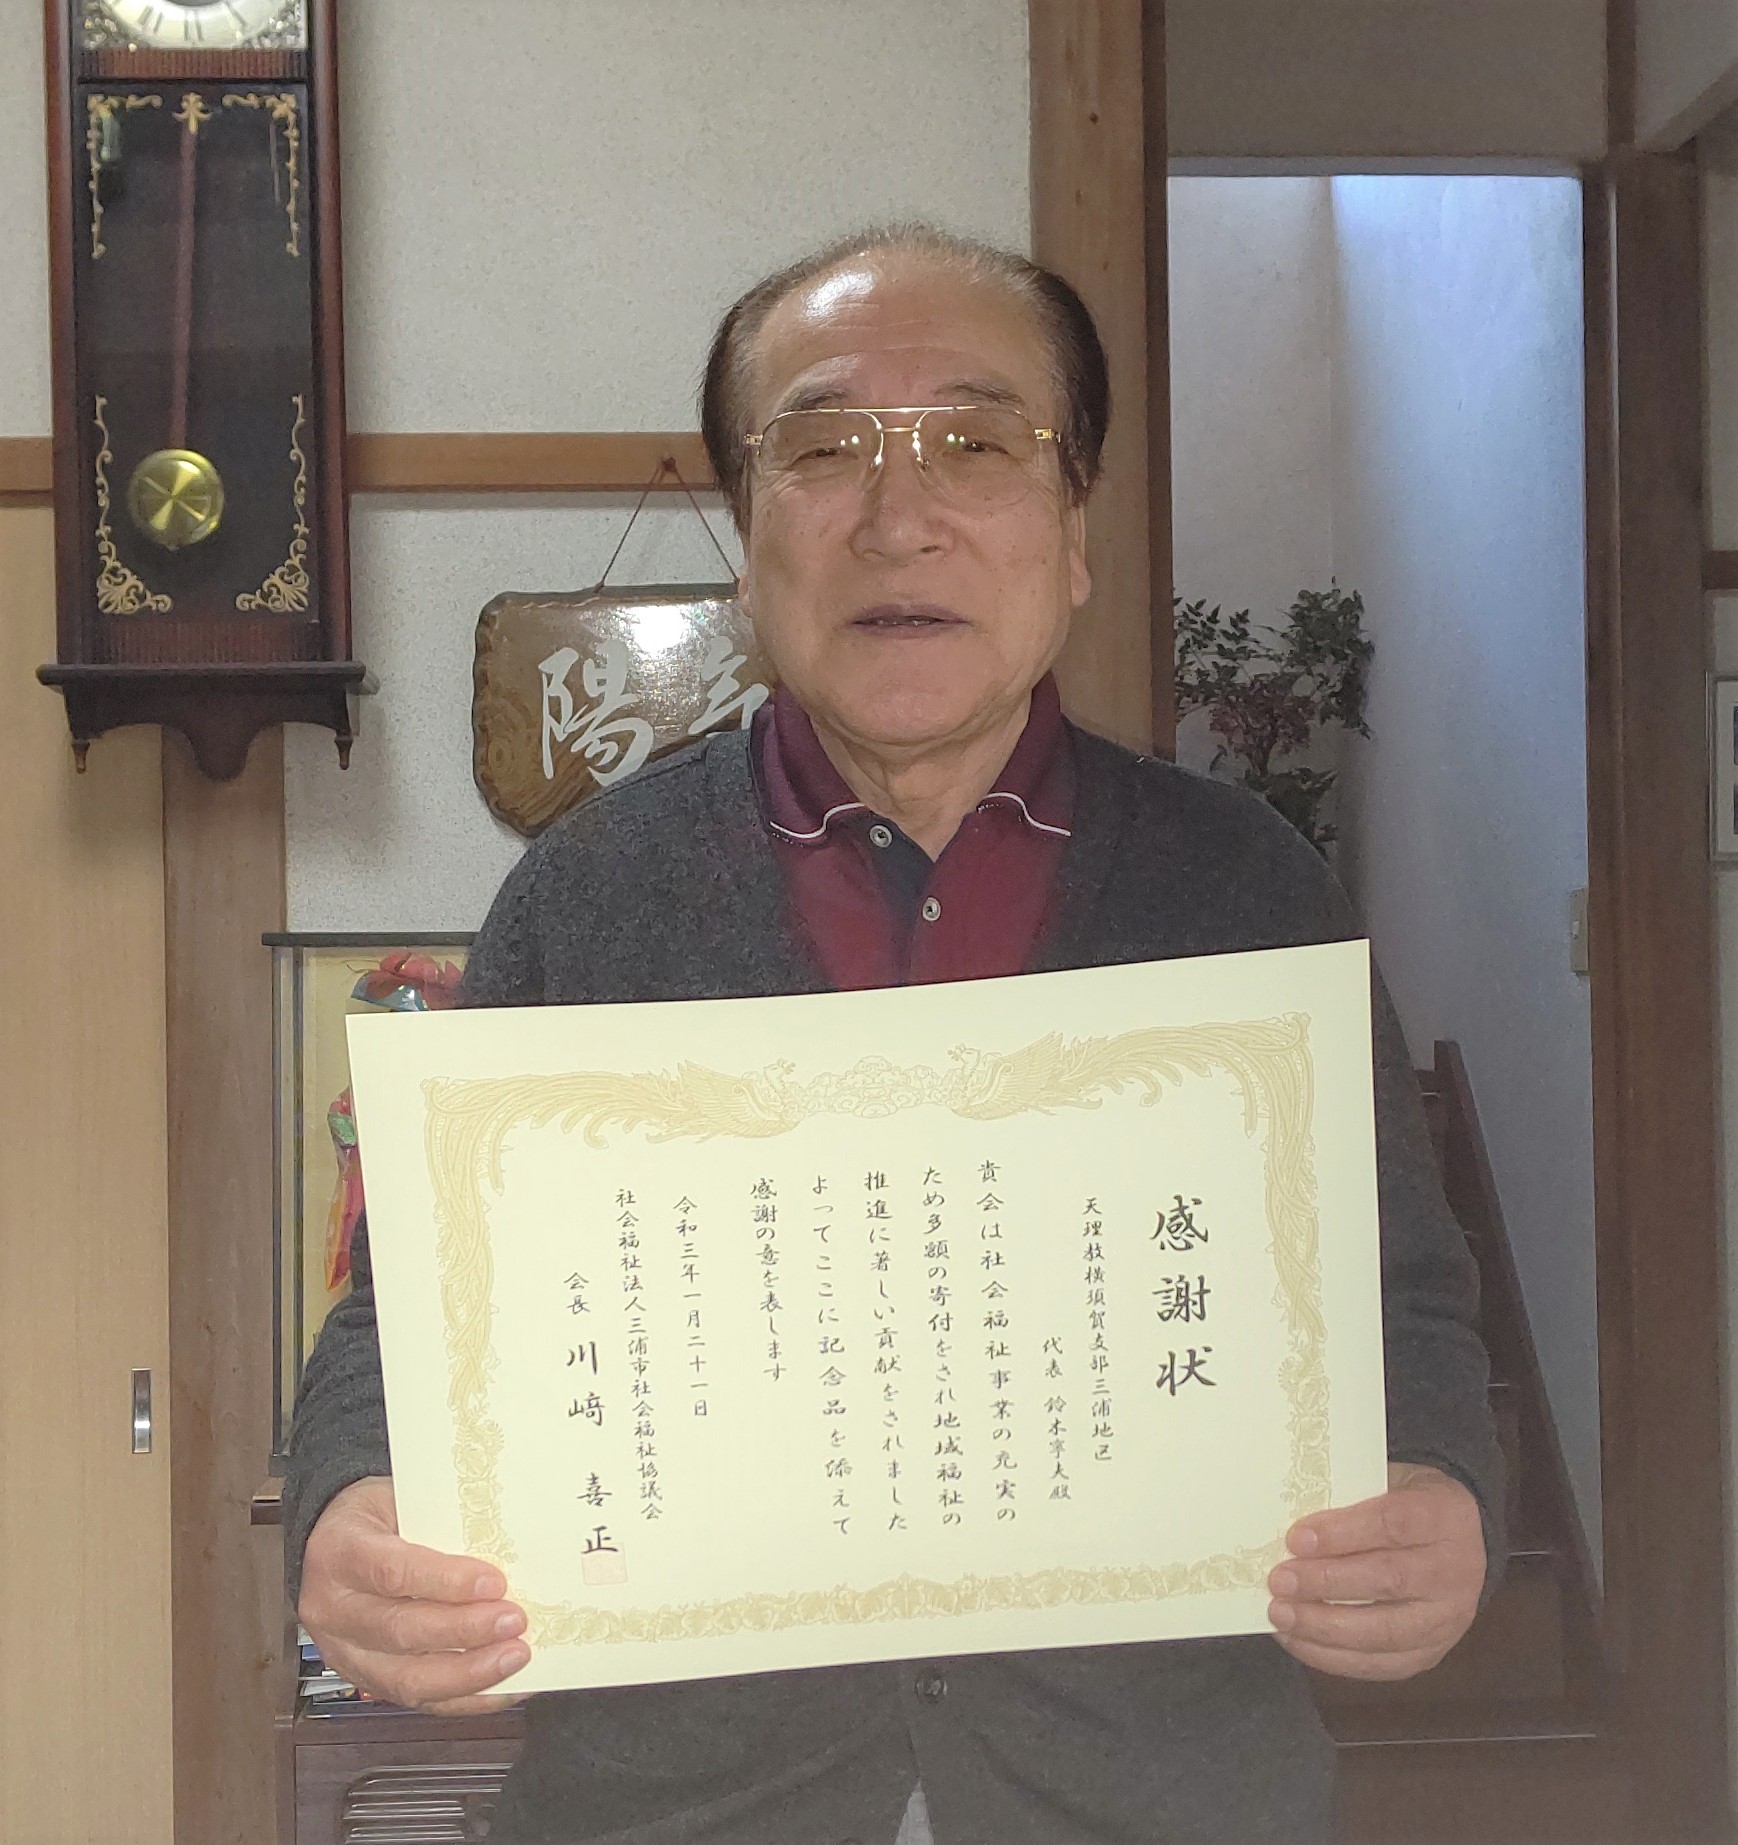 陽
感謝状
天理教横須賀支部三浦地区
代表 鈴木寧夫殿
貴会は社会福祉事業の充実の
ため多額の寄付をされ地域福祉の
推進に著しい貢献をされました
よってここに記念品を添えて
感謝の意を表します
令和三年一月二十一日
社会福祉法人三浦市社会福祉協議会
会長 川﨑 喜正